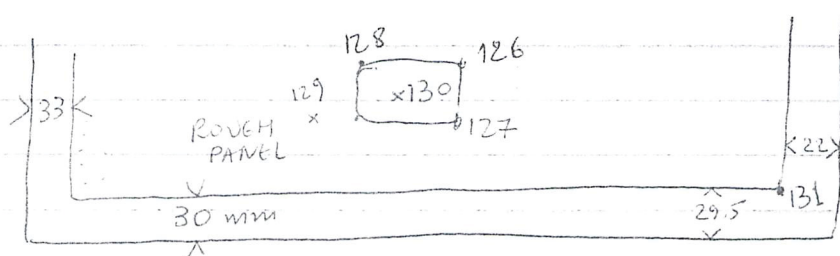 128
126
129
x130
33
127
ROUGH
PANEL
22
131
30 mm
29.5